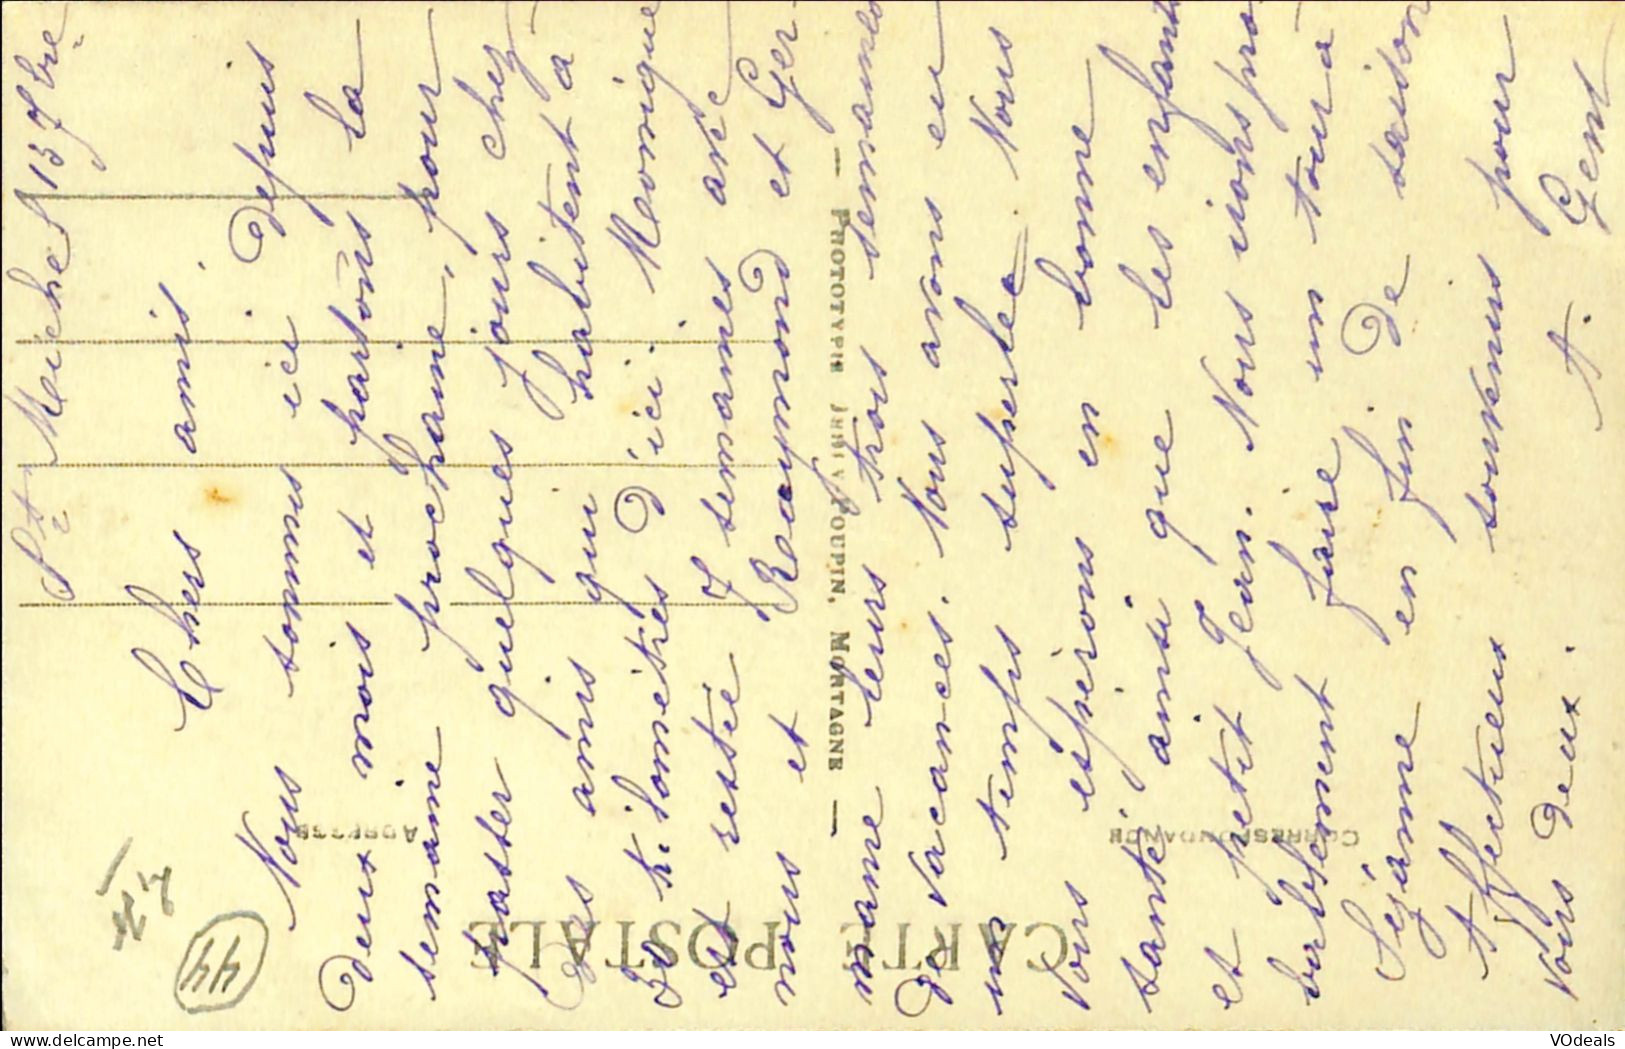 St Michel 13 7bre
Chers amis.
Nous sommes ici depuis
deux mois et partons la
semaine prochaine, pour
passer quelques jours chez
des amis qui habitent à
30 kilomètres d'ici. Monique
est restée 7 semaines avec
nous et Raymond et Ger-
maine leurs trois semaines
de vacances. Nous avons eu
un temps superbe. Nous
vous espérons en bonne
santé ainsi que les enfants
et petit Jean. Nous irons pro-
bablement faire un tour à
Sézanne en fin de saison
Affectueux souvenirs pour
vous deux.
A. Gent
CARTE POSTALE
CORRESPONDANCE
ADRESSE
— PHOTOTYPIE POUPIN, MORTAGNE —
44
www.delcampe.net
VOdeals